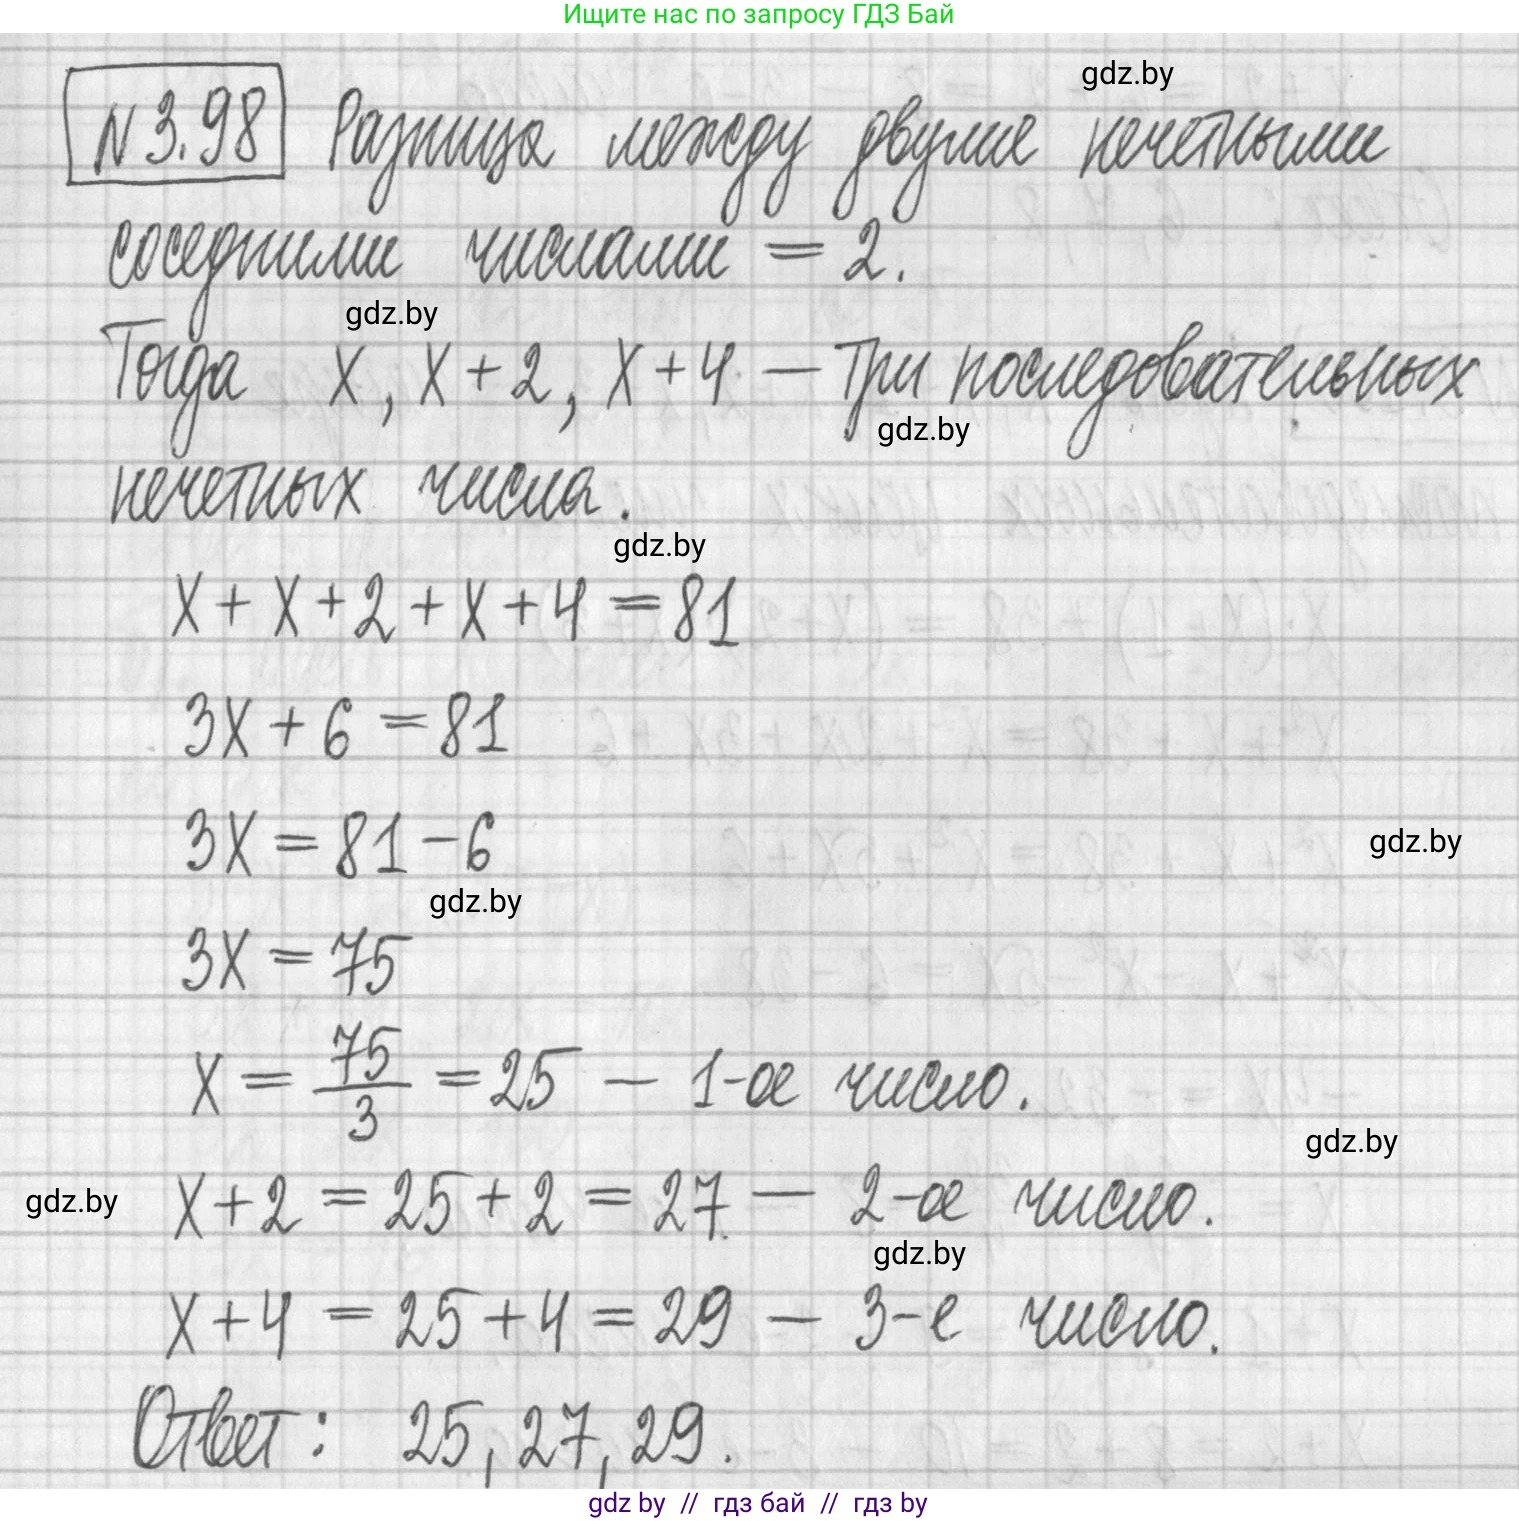 Ищите нас по запросу ГДЗ Бай
gdz.by
N 3.98 Разница между двумя нечетными
соседними числами = 2.
gdz.by
Тогда x, x+2, x+4 — три последовательных
gdz.by
нечетных числа.
gdz.by
x + x + 2 + x + 4 = 81
3x + 6 = 81
3x = 81 - 6
gdz.by
gdz.by
3x = 75
x = 75/3 = 25 — 1-ое число.
gdz.by
gdz.by
x + 2 = 25 + 2 = 27 — 2-ое число.
gdz.by
x + 4 = 25 + 4 = 29 — 3-е число.
Ответ: 25, 27, 29.
gdz by // гдз бай // гдз by